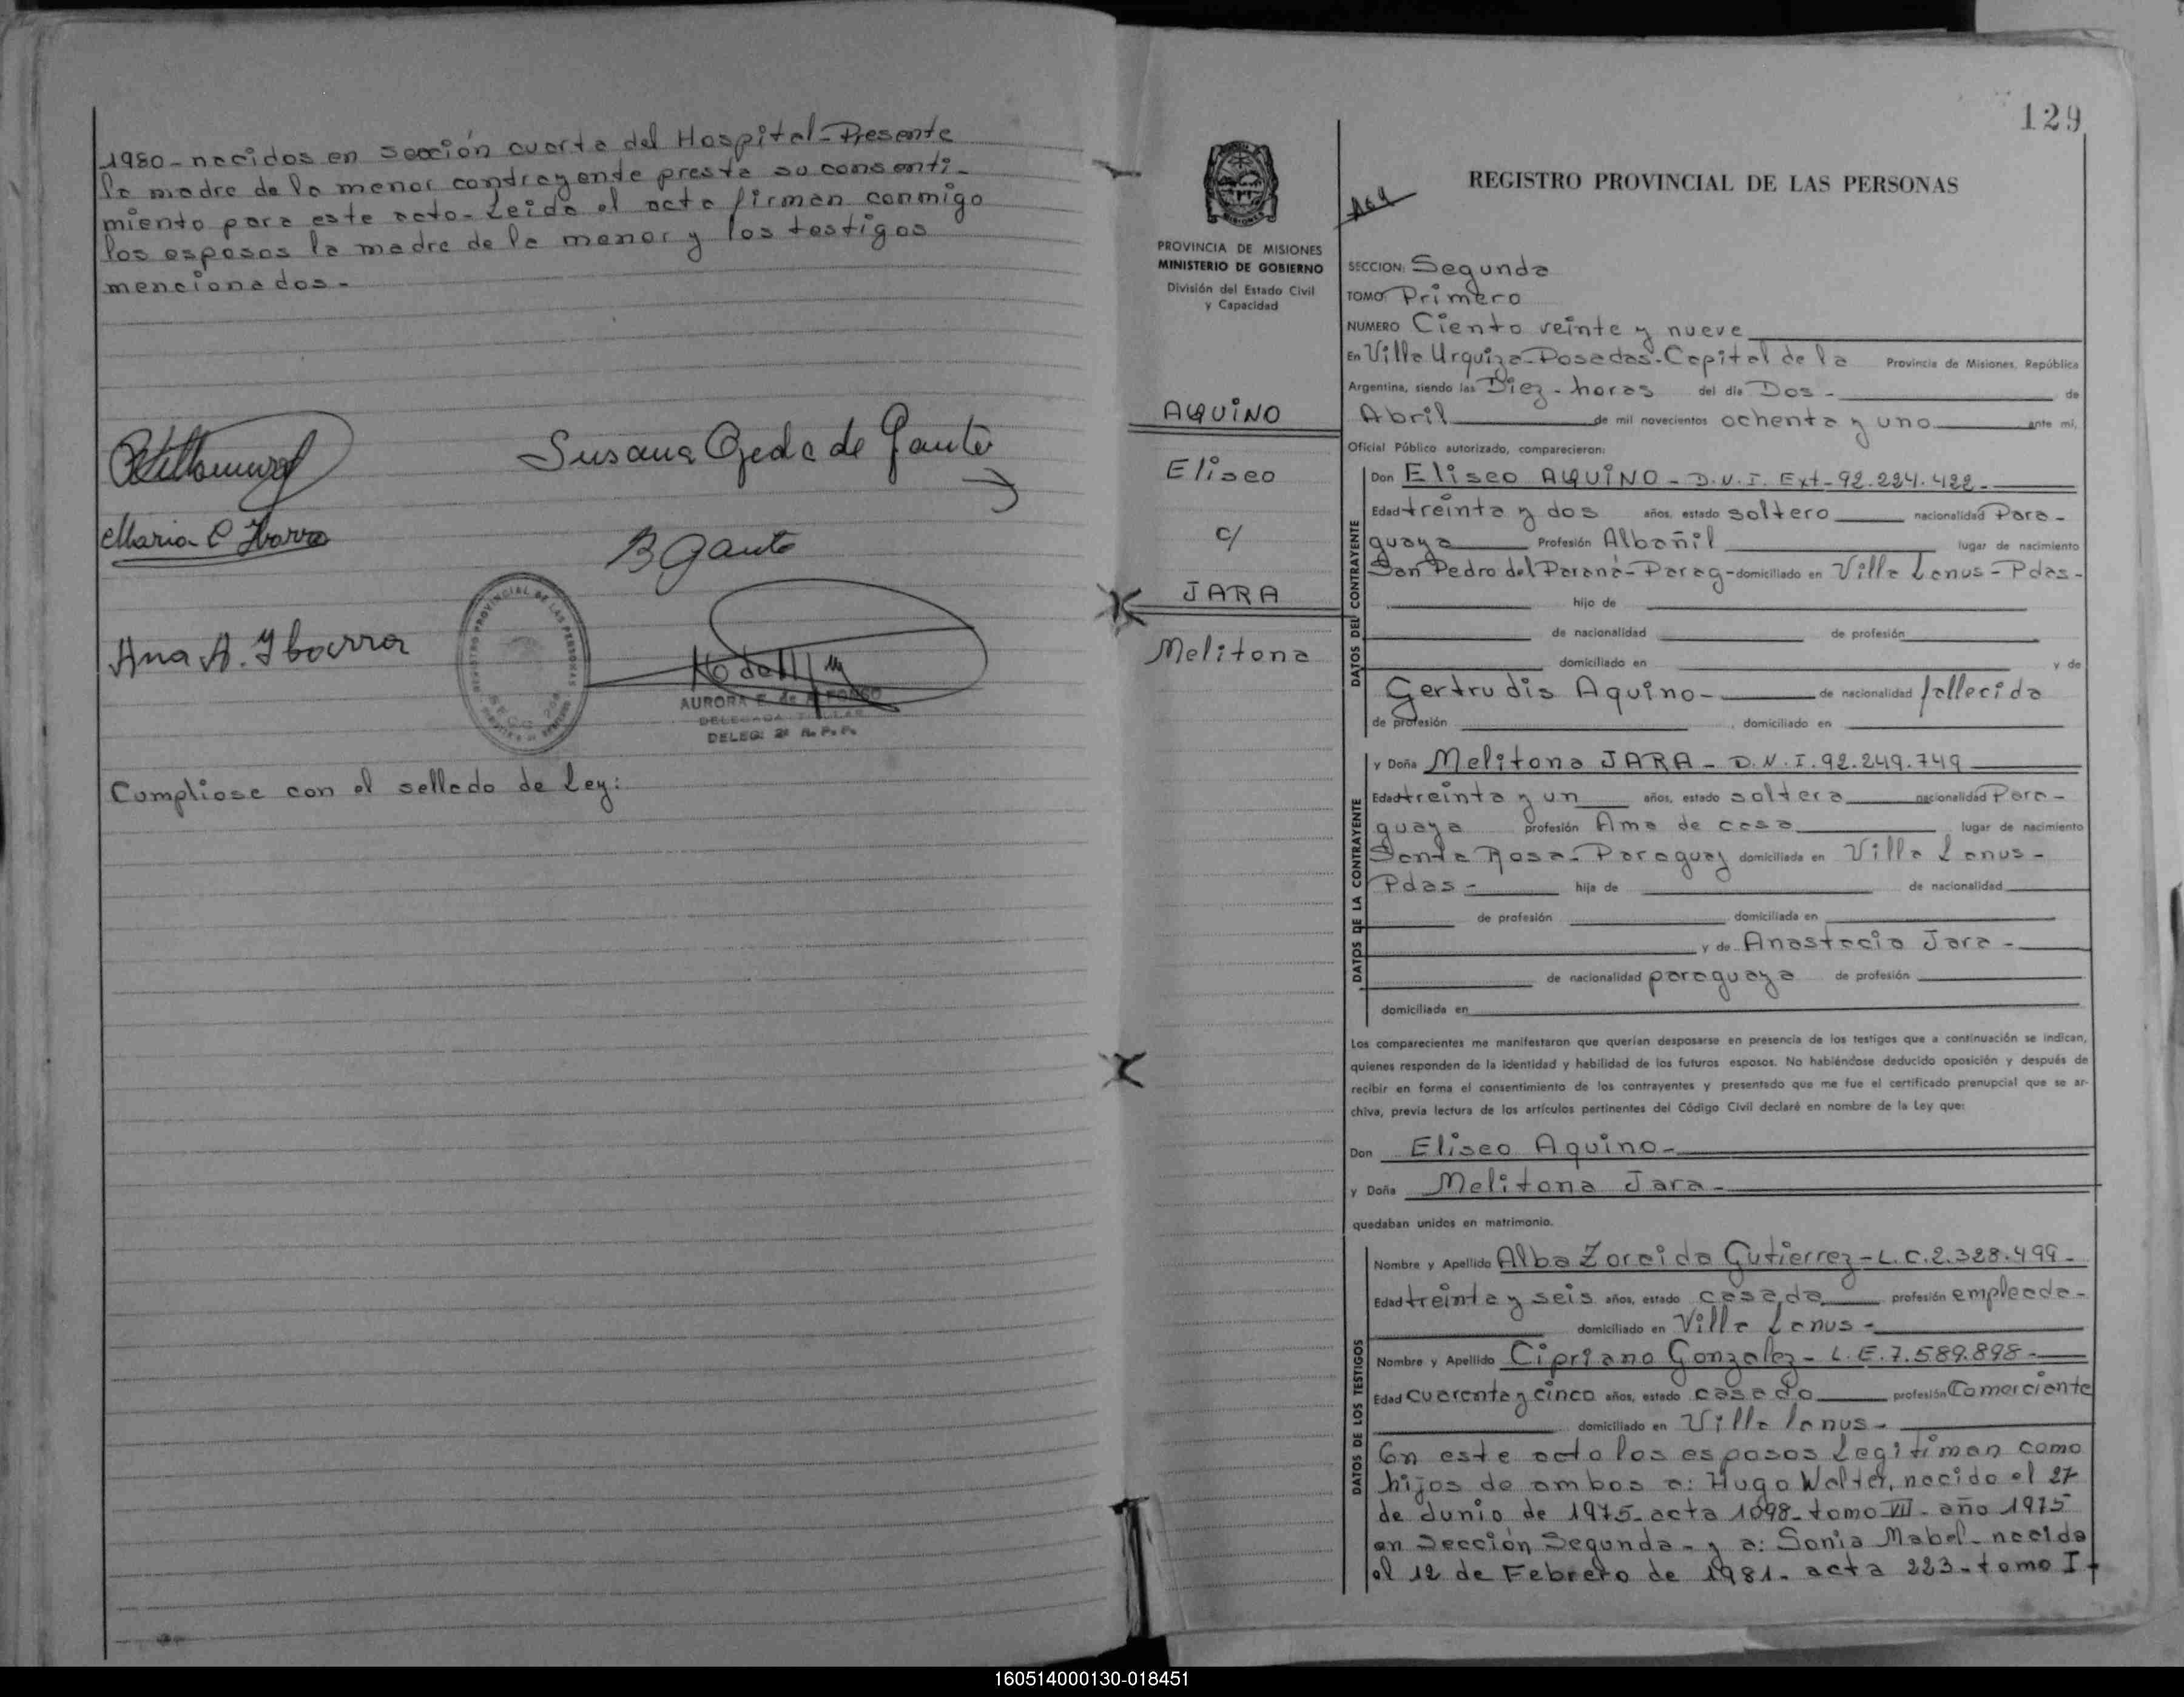 1980 - nacidos en sección cuarta del Hospital - Presente
la madre de la menor contrayente presta su consenti-
miento para este acto - Leida el acta firman conmigo
los esposos la madre de la menor y los testigos
mencionados -
Susana Ojeda de Gauto
Maria C Ibarra
B Gauto
Ana A. Ibarra
REGISTRO PROVINCIAL DE LAS PERSONAS
AURORA E. de ALFONSO
DELEGADA TITULAR
DELEG: 2ª R. P. P.
Cumpliose con el sellado de Ley:
129
PROVINCIA DE MISIONES
MINISTERIO DE GOBIERNO
División del Estado Civil
y Capacidad
AQUINO
Eliseo
c/
JARA
Melitona
REGISTRO PROVINCIAL DE LAS PERSONAS
SECCION: Segunda
TOMO: Primero
NUMERO Ciento veinte y nueve
En Villa Urquiza - Posadas - Capital de la Provincia de Misiones, República
Argentina, siendo las Diez - horas del día Dos - de
Abril de mil novecientos ochenta y uno ante mí,
Oficial Público autorizado, comparecieron:
DATOS DEL CONTRAYENTE
Don Eliseo AQUINO - D.N.I. Ext - 92.224.422 -
Edad treinta y dos años, estado soltero nacionalidad Para-
guaya Profesión Albañil lugar de nacimiento
San Pedro del Paraná - Parag - domiciliado en Villa Lanus - Pdas -
hijo de
de nacionalidad de profesión
domiciliado en y de
Gertrudis Aquino - de nacionalidad fallecida
de profesión domiciliado en
DATOS DE LA CONTRAYENTE
y Doña Melitona JARA - D.N.I. 92.249.749
Edad treinta y un años, estado soltera nacionalidad Para-
guaya profesión Ama de casa lugar de nacimiento
Santa Rosa - Paraguay domiciliada en Villa Lanus -
Pdas - hija de de nacionalidad
de profesión domiciliada en
y de Anastacia Jara -
de nacionalidad paraguaya de profesión
domiciliada en
Los comparecientes me manifestaron que querían desposarse en presencia de los testigos que a continuación se indican,
quienes responden de la identidad y habilidad de los futuros esposos. No habiéndose deducido oposición y después de
recibir en forma el consentimiento de los contrayentes y presentado que me fue el certificado prenupcial que se ar-
chiva, previa lectura de los artículos pertinentes del Código Civil declaré en nombre de la Ley que:
Don Eliseo Aquino -
y Doña Melitona Jara -
quedaban unidos en matrimonio.
DATOS DE LOS TESTIGOS
Nombre y Apellido Alba Zoraida Gutierrez - L.C. 2.328.499 -
Edad treinta y seis años, estado casada profesión empleada -
domiciliado en Villa Lanus -
Nombre y Apellido Cipriano Gonzalez - L.E. 7.589.898 -
Edad cuarenta y cinco años, estado casado profesión Comerciante
domiciliado en Villa lanus -
En este acto los esposos Legitiman como
hijos de ambos a: Hugo Walter, nacido el 27
de Junio de 1975 - acta 1098 - tomo VII - año 1975
en Sección Segunda - y a: Sonia Mabel - nacida
el 12 de Febrero de 1981 - acta 223 - tomo I -
160514000130-018451